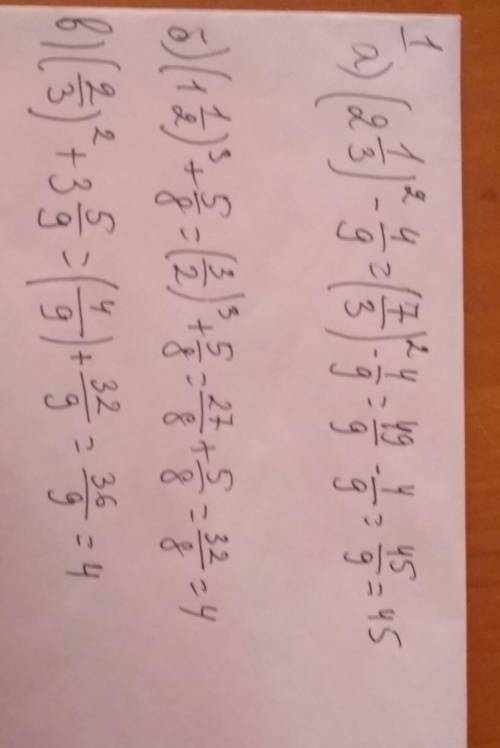 1
а) (2 1/3)² - 4/9 = (7/3)² - 4/9 = 49/9 - 4/9 = 45/9 = 45
б) (1 1/2)³ + 5/8 = (3/2)³ + 5/8 = 27/8 + 5/8 = 32/8 = 4
в) (2/3)² + 3 5/9 = (4/9) + 32/9 = 36/9 = 4